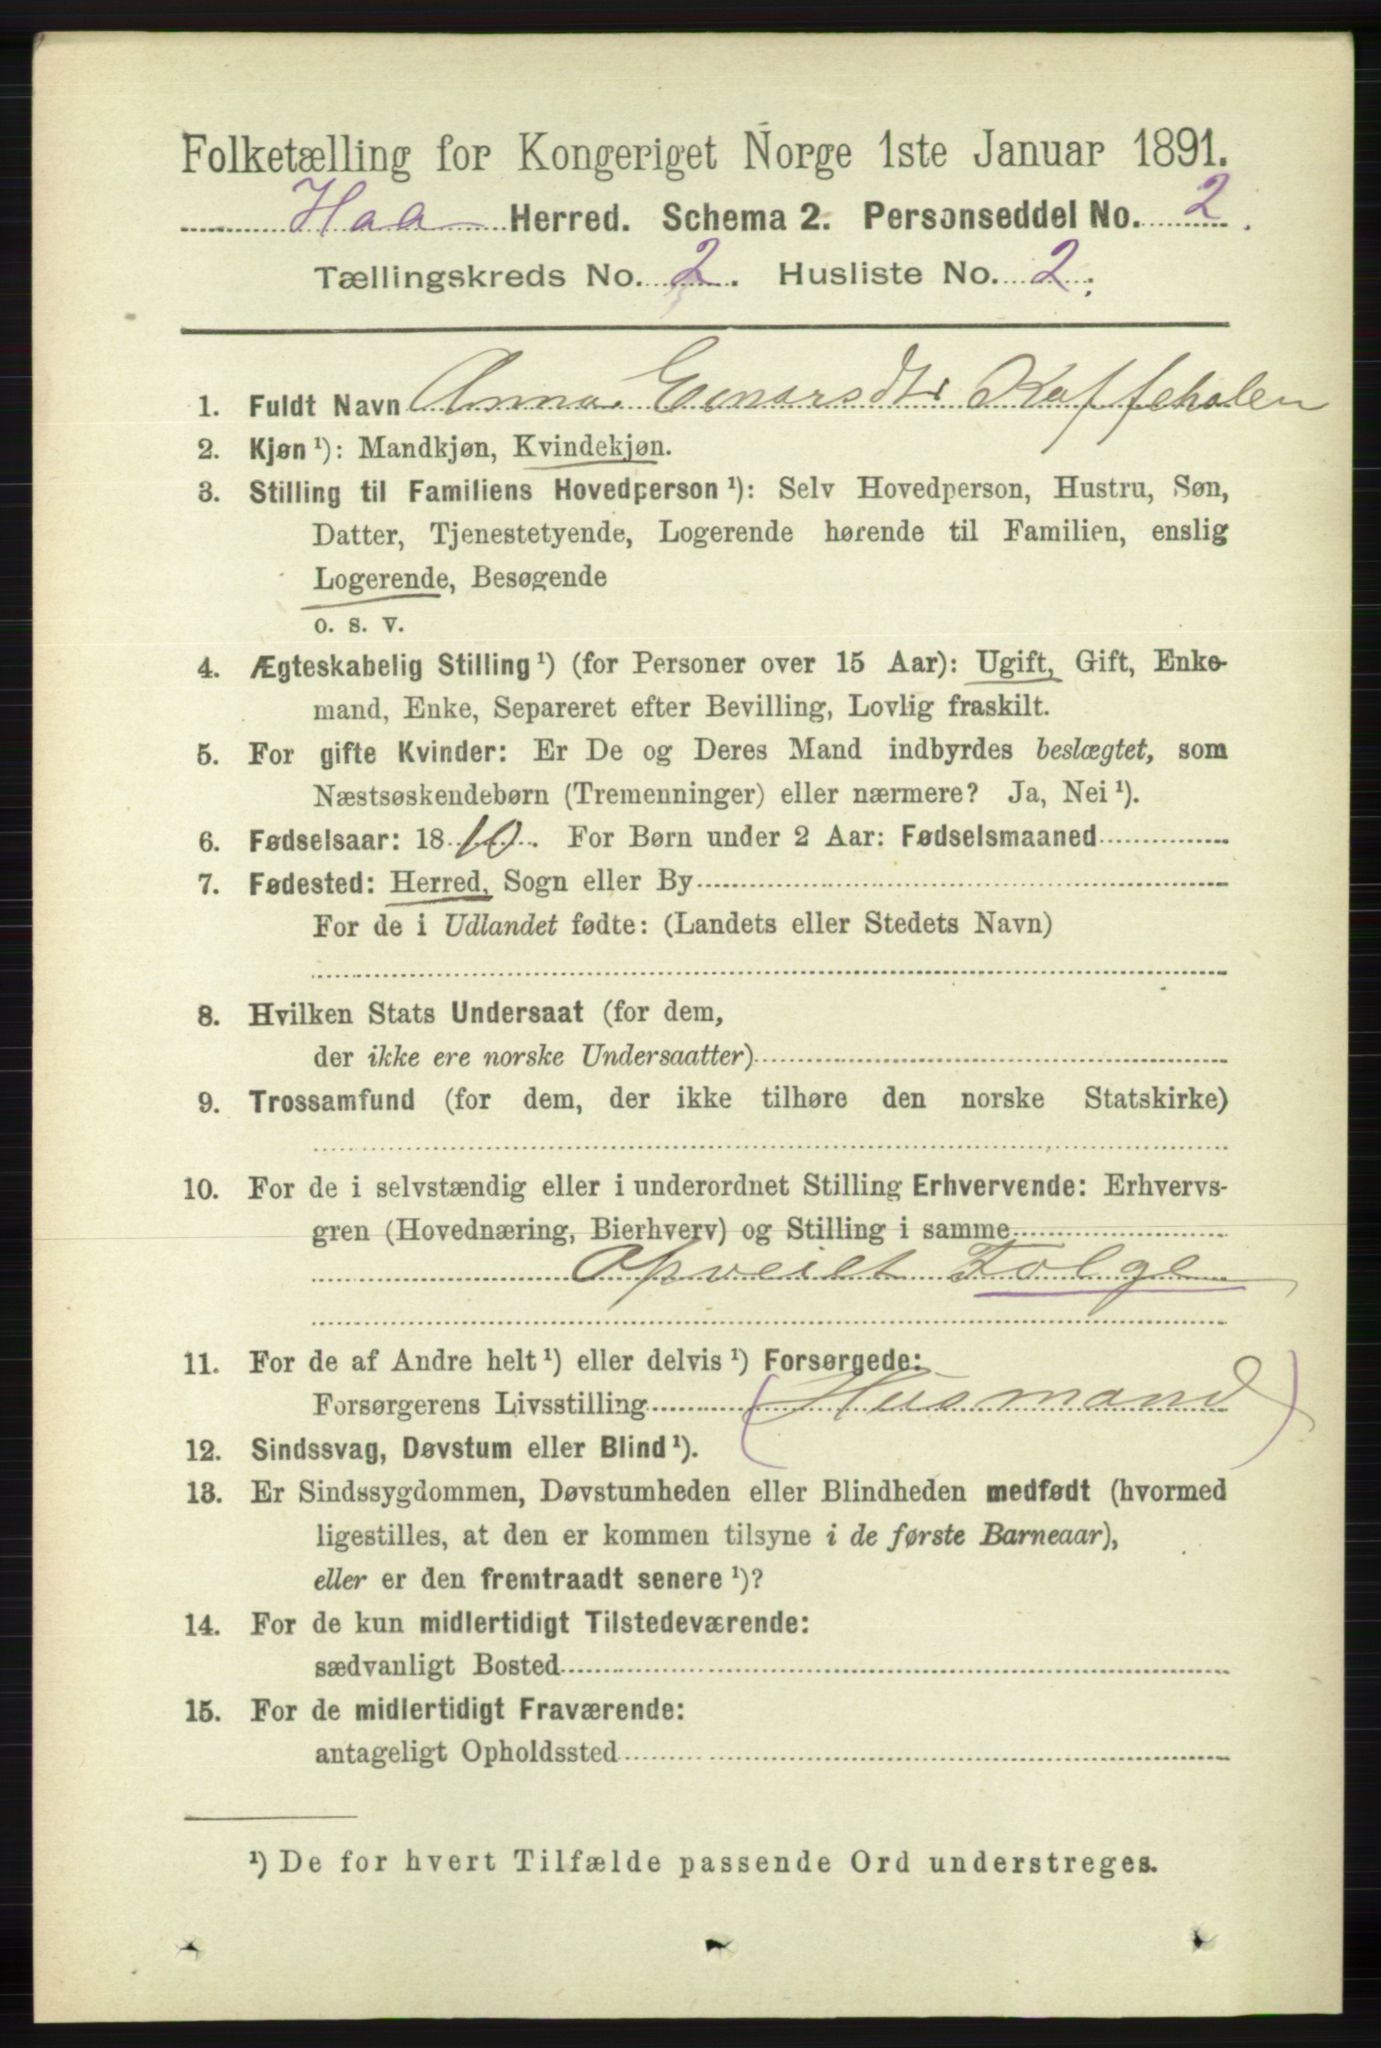 Folketælling for Kongeriget Norge 1ste Januar 1891.
Haa Herred. Schema 2. Personseddel No. 2.
Tællingskreds No. 2. Husliste No. 2.
1. Fuldt Navn Anna Eenarsdtr Kaffehalen
2. Kjøn ¹): Mandkjøn, Kvindekjøn.
3. Stilling til Familiens Hovedperson ¹): Selv Hovedperson, Hustru, Søn,
Datter, Tjenestetyende, Logerende hørende til Familien, enslig
Logerende, Besøgende
o. s. v.
4. Ægteskabelig Stilling ¹) (for Personer over 15 Aar): Ugift, Gift, Enke-
mand, Enke, Separeret efter Bevilling, Lovlig fraskilt.
5. For gifte Kvinder: Er De og Deres Mand indbyrdes beslægtet, som
Næstsøskendebørn (Tremenninger) eller nærmere? Ja, Nei ¹).
6. Fødselsaar: 1810. For Børn under 2 Aar: Fødselsmaaned
7. Fødested: Herred, Sogn eller By
For de i Udlandet fødte: (Landets eller Stedets Navn)
8. Hvilken Stats Undersaat (for dem,
der ikke ere norske Undersaatter)
9. Trossamfund (for dem, der ikke tilhøre den norske Statskirke)
10. For de i selvstændig eller i underordnet Stilling Erhvervende: Erhvervs-
gren (Hovednæring, Bierhverv) og Stilling i samme
Opveiet Folge
11. For de af Andre helt ¹) eller delvis ¹) Forsørgede:
Forsørgerens Livsstilling (Husmand)
12. Sindssvag, Døvstum eller Blind ¹).
13. Er Sindssygdommen, Døvstumheden eller Blindheden medfødt (hvormed
ligestilles, at den er kommen tilsyne i de første Barneaar),
eller er den fremtraadt senere ¹)?
14. For de kun midlertidigt Tilstedeværende:
sædvanligt Bosted
15. For de midlertidigt Fraværende:
antageligt Opholdssted
¹) De for hvert Tilfælde passende Ord understreges.